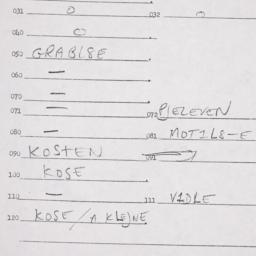 031 O 032 O
040 O
050 GRABISE
060 —
070 —
071 — 072 PJEZEVEN
080 — 081 MOTILS-E
090 KOSTEN 091
100 KOSE
110 — 111 VIDLE
120 KOSE / A KLEJNE